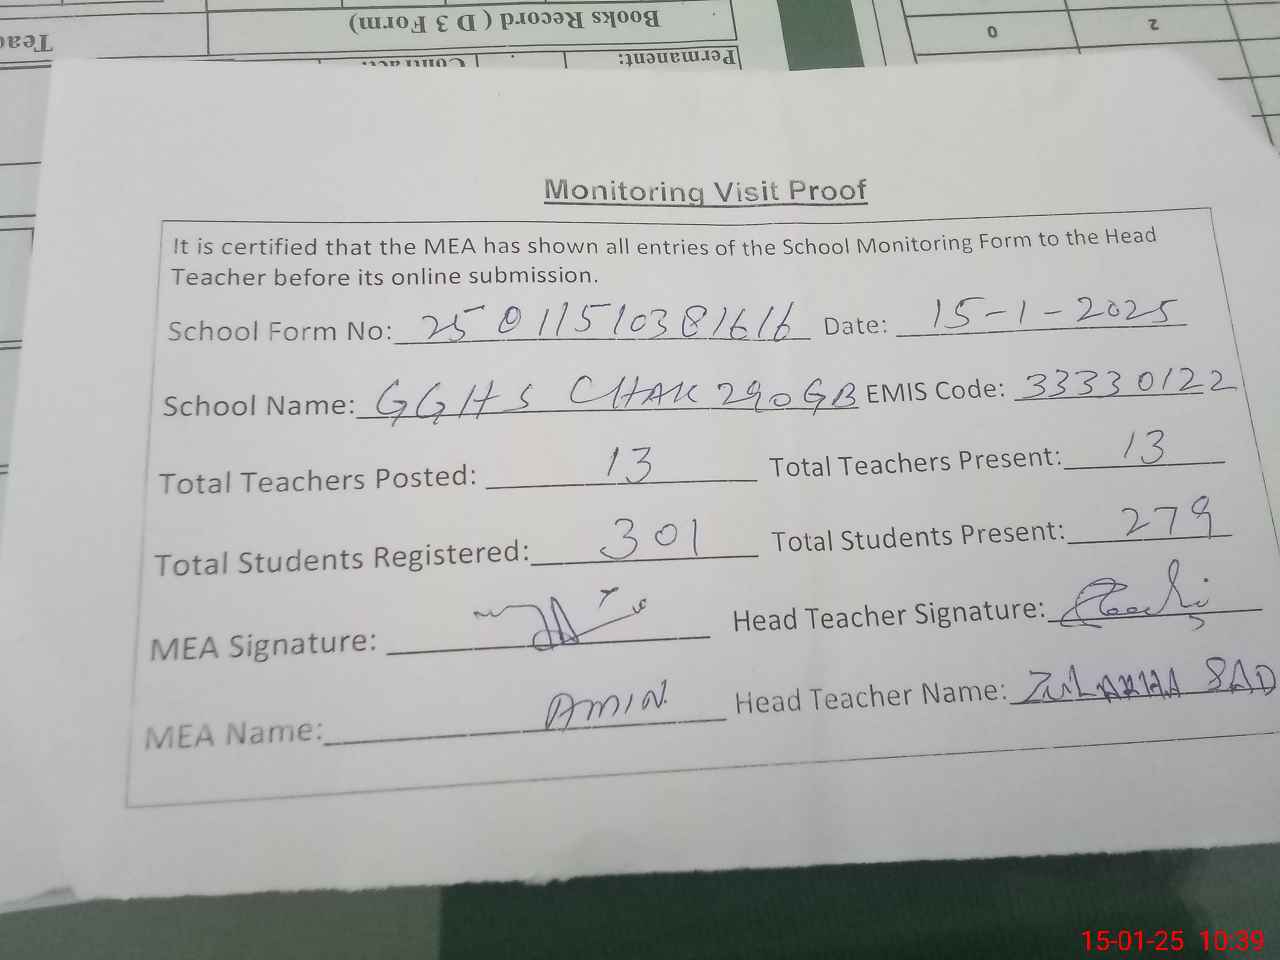 Books Record ( D 3 Form)
Teac
0
2
Permanent:
Contract:
Monitoring Visit Proof
It is certified that the MEA has shown all entries of the School Monitoring Form to the Head
Teacher before its online submission.
School Form No: 25011510381616 Date: 15-1-2025
School Name: GGHS CHAK 290GB EMIS Code: 33330122
Total Teachers Posted: 13 Total Teachers Present: 13
Total Students Registered: 301 Total Students Present: 279
MEA Signature: Head Teacher Signature:
MEA Name: AMIN Head Teacher Name: ZULAKHA SAD
15-01-25 10:39